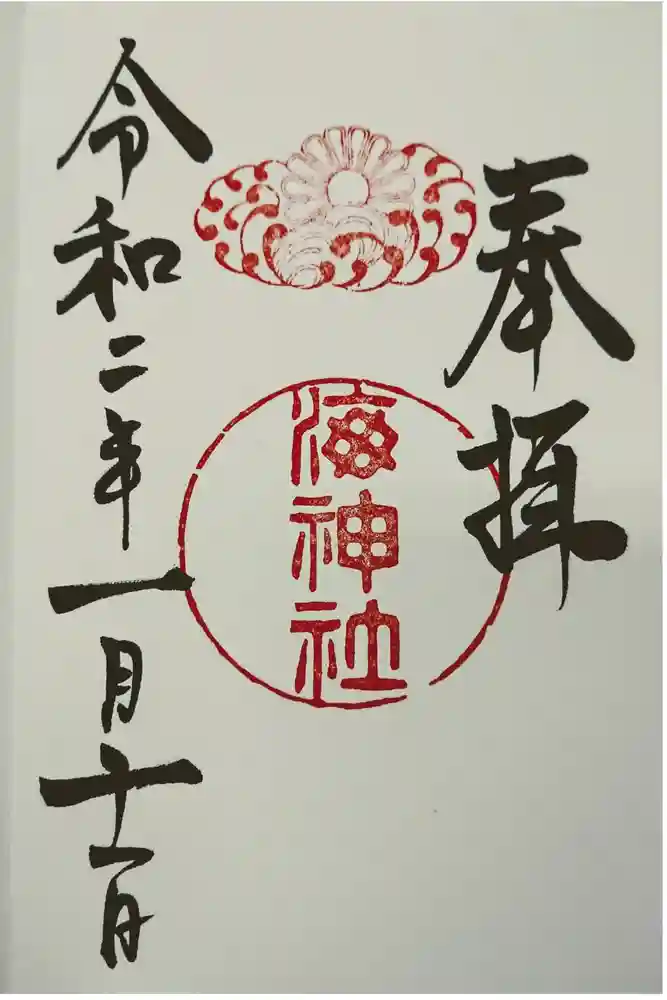 奉拝
海神社
令和二年一月十一日